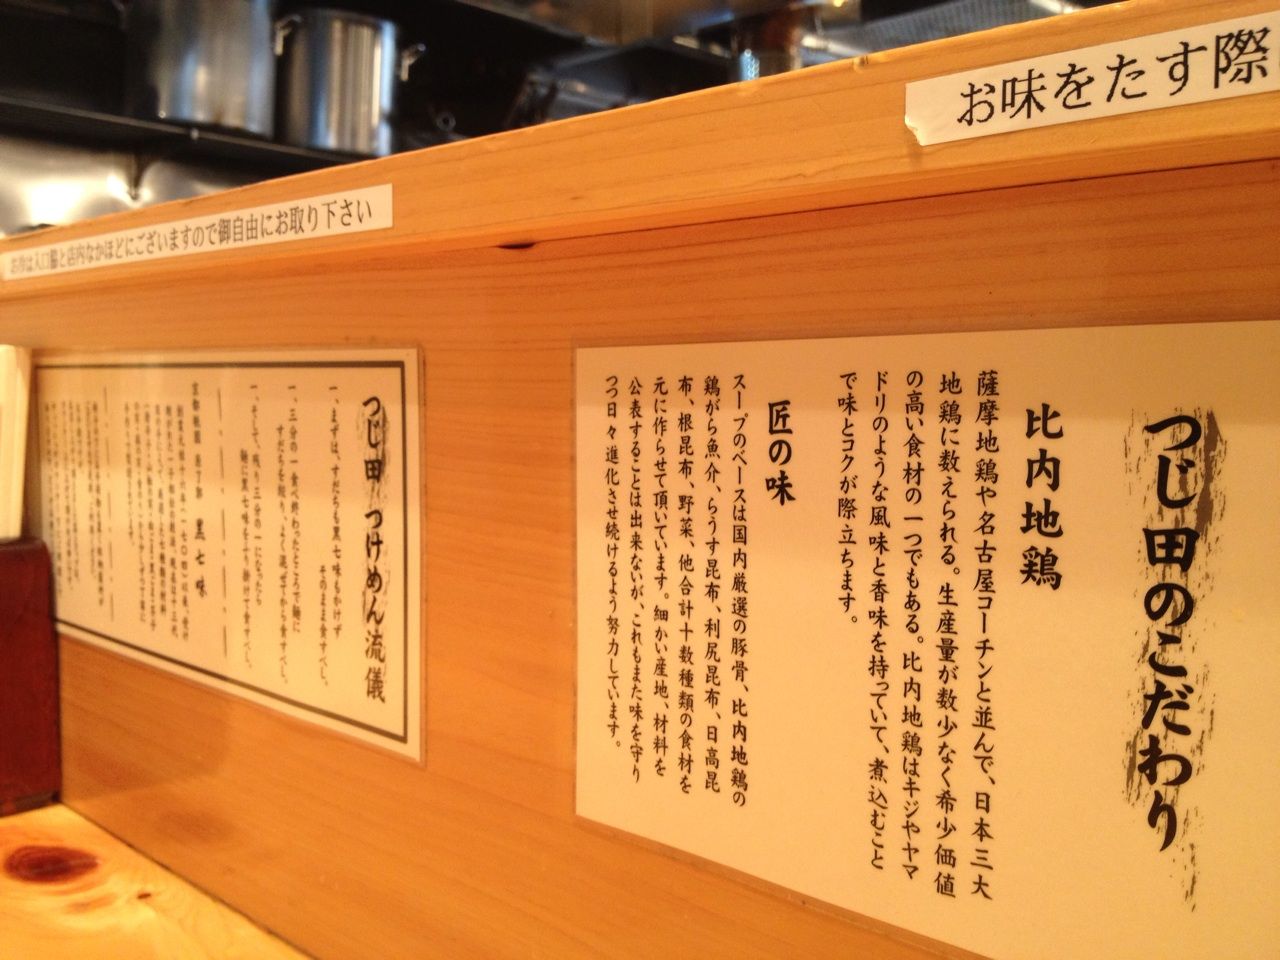 お味をたす際
は入口脇と店内なかほどにございますので御自由にお取り下さい
つじ田のこだわり
比内地鶏
薩摩地鶏や名古屋コーチンと並んで、日本三大
地鶏に数えられる。生産量が数少なく希少価値
の高い食材の一つでもある。比内地鶏はキジやヤマ
ドリのような風味と香味を持っていて、煮込むこと
で味とコクが際立ちます。
匠の味
スープのベースは国内厳選の豚骨、比内地鶏の
鶏がら魚介、らうす昆布、利尻昆布、日高昆
布、根昆布、野菜、他合計十数種類の食材を
元に作らせて頂いています。細かい産地、材料を
公表することは出来ないが、これもまた味を守り
つつ日々進化させ続けるよう努力しています。
つじ田 つけめん流儀
一、まずは、すだちも黒七味もかけず
そのまま食すべし。
一、三分の一食べ終わったところで麺に
すだちを絞り、よく混ぜてから食すべし。
一、そして、残り三分の一になったら
麺に黒七味をふり掛けて食すべし。
京都祇園 原了郭 黒七味